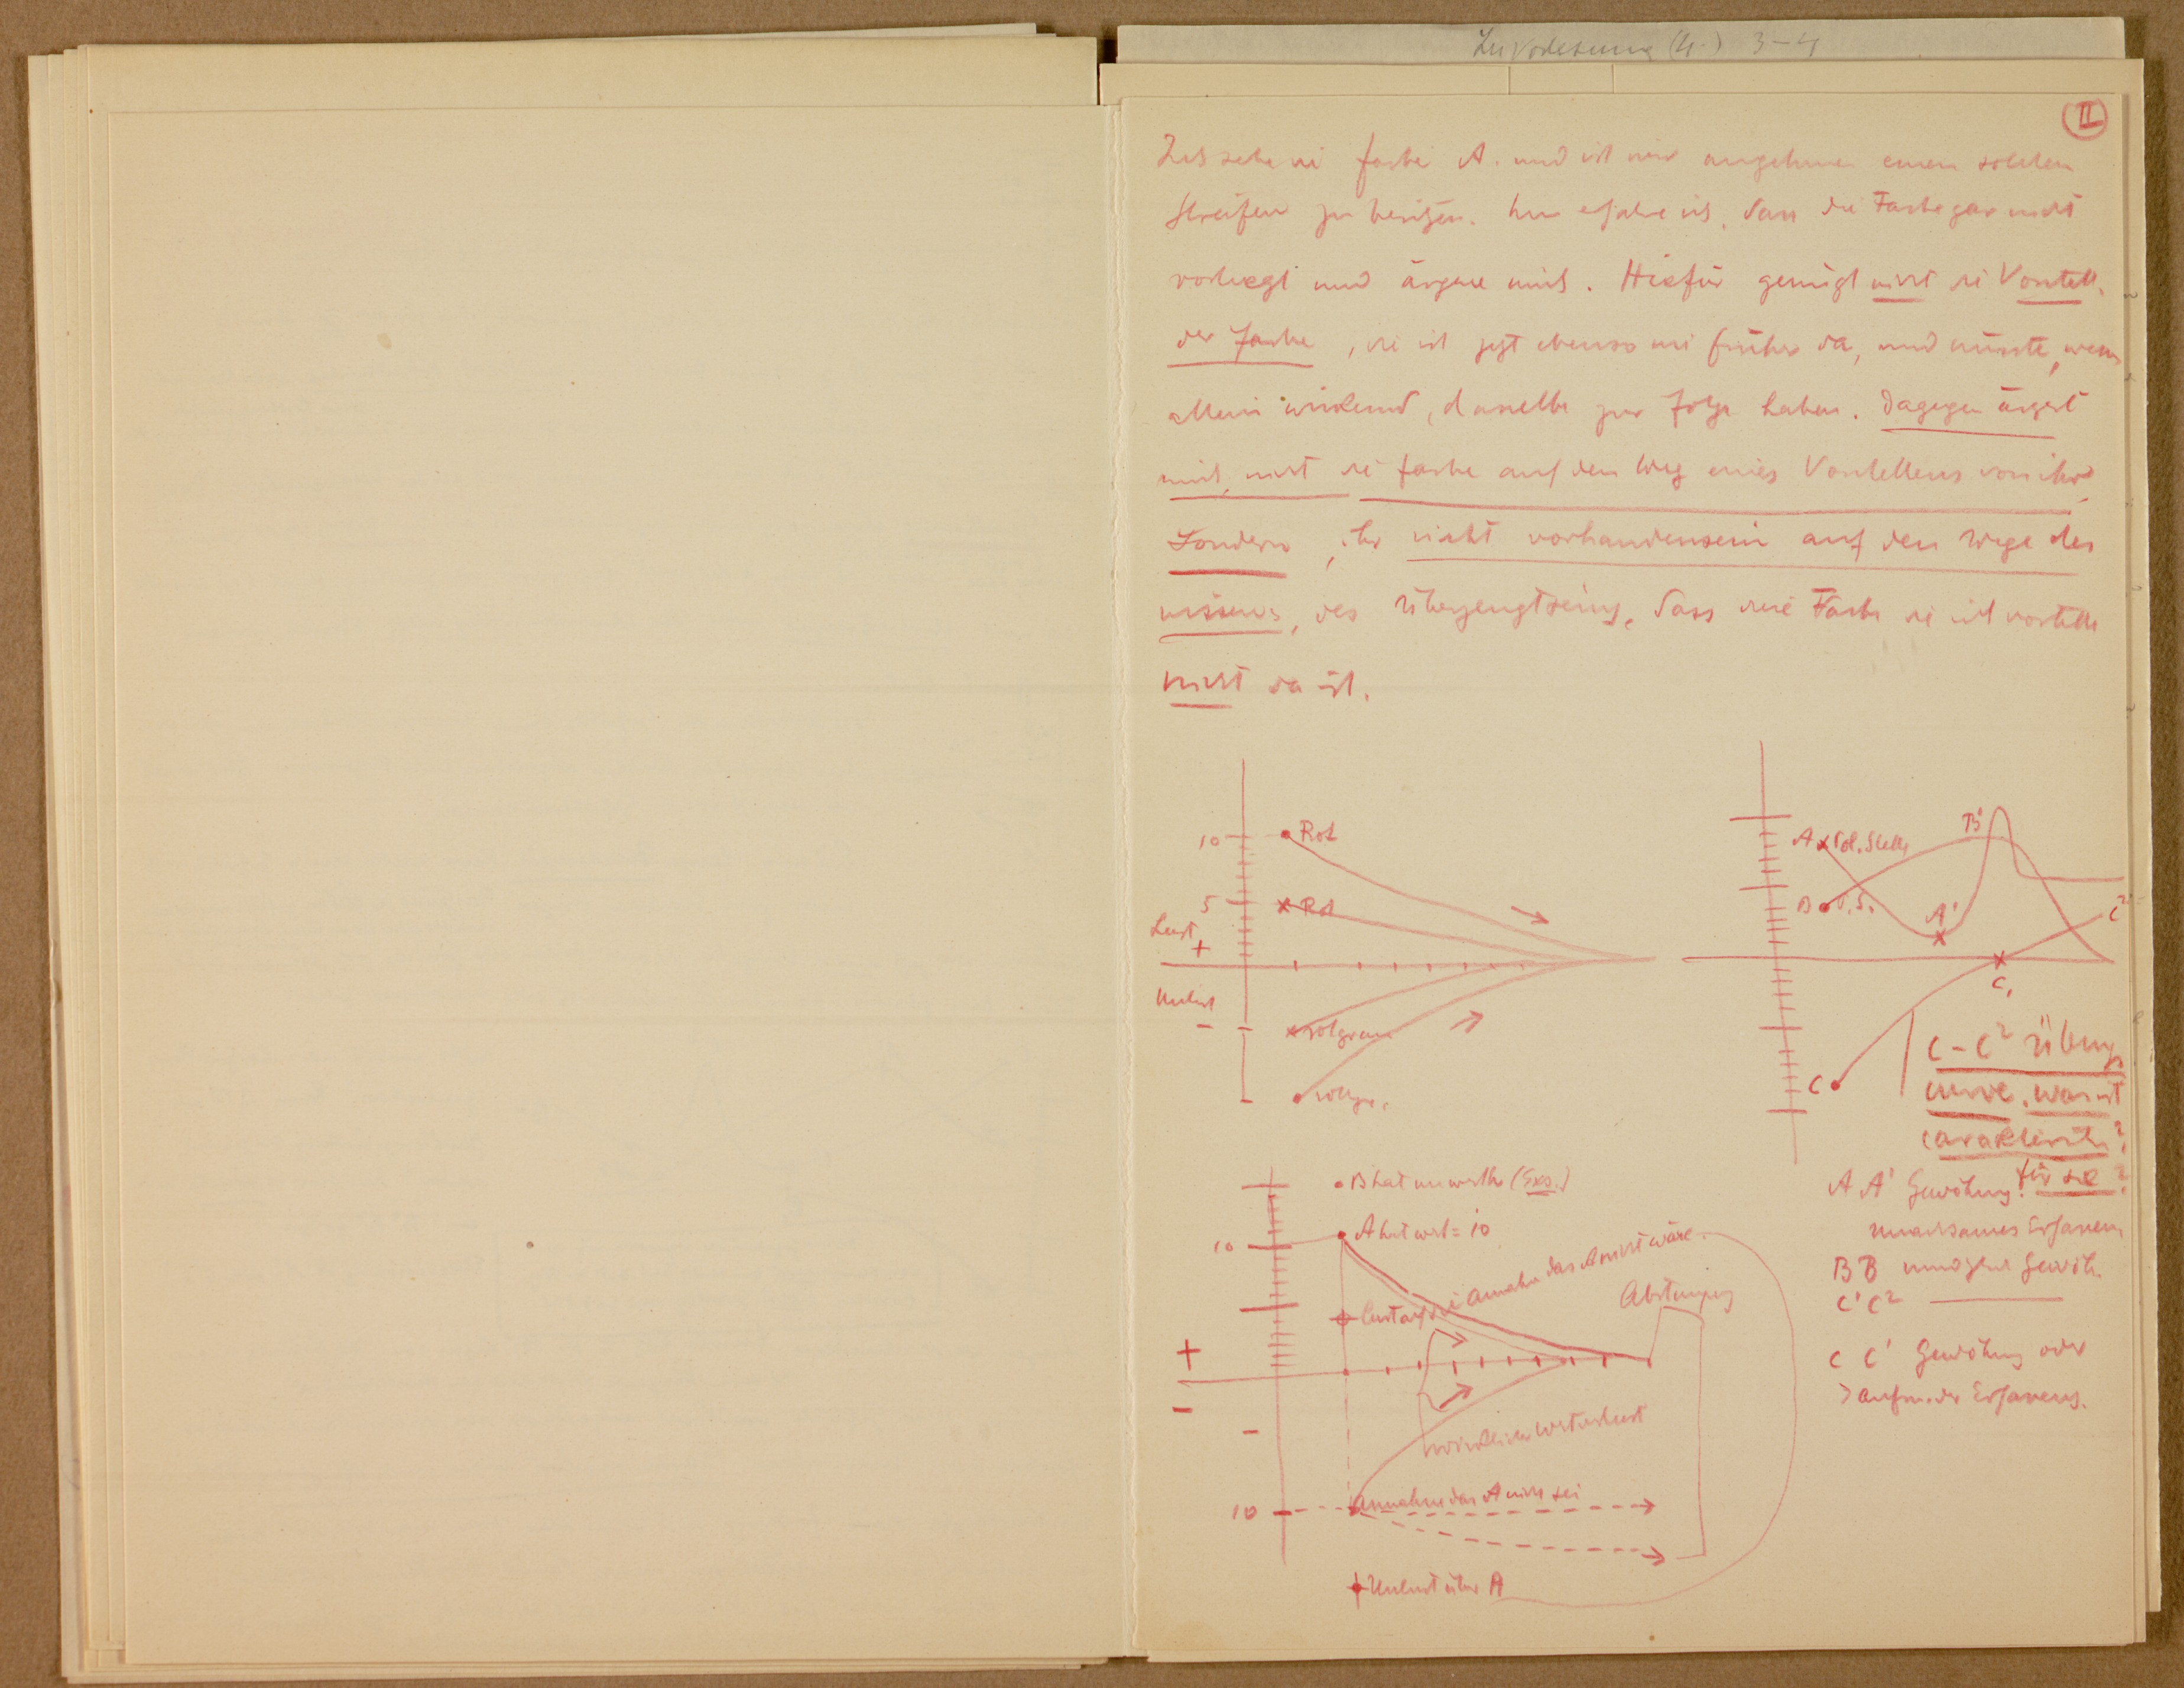 Zur Vorlesung (4.) 3-4
II
Ich sehe die Farbe A. und ist mir angenehm einen solchen
Streifen zu besitzen. Nun erfahre ich, dass die Farbe gar nicht
vorliegt und ärgere mich. Hiefür genügt nicht die Vorstell.
der Farbe, sie ist jetzt ebenso wie früher da, und müsste, wenn
allein wirkend, dasselbe zur Folge haben. Dagegen ärgert
mich nicht die Farbe auf den Weg eines Vorstellens von ihr,
sondern, ihr nicht vorhandensein auf den Wege des
wissens, des Überzeugtseins, dass die Farbe die ich vorstelle
nicht da ist.
10 Rot
5 Rot
Lust
+
Unlust
-
rotgrau
rotgr.
A
B
A'
B'
C
C,
C²
C-C² Übungs
curve. was ist
carakteristi
für sie?
B hat unwerth
10 A hat wert = 10
Annahme das A nicht wäre
+
-
-
wirklicher Wertverlust
10 Annahme das A nicht sei
Unlust über A
A A' Gewöhnung
B B
C' C²
C C' Gewöhnung oder